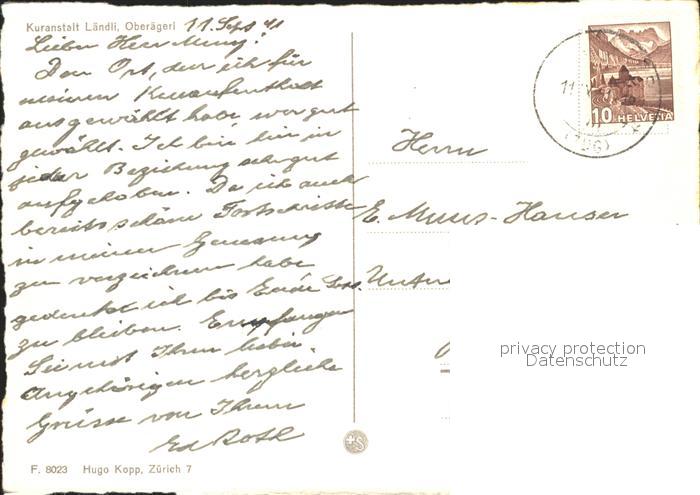 Kuranstalt Ländli, Oberägeri 11. Sept 41
Lieber Herr
Den Ort, den ich für
meinen Kuraufenthalt
ausgewählt habe war gut
gewählt. Ich bin hier in
jeder Beziehung sehr gut
aufgehoben. Da ich auch
bereits schöne Fortschritte
in meiner Genesung
zu verzeichnen habe
gedenke ich bis Ende Sept.
zu bleiben. Empfangen
Sie mit Ihren lieben
Angehörigen herzliche
Grüsse von Ihrem
Ed Roth
F. 8023 Hugo Kopp, Zürich 7
+S
10 HELVETIA
11.
(ZUG)
Herrn
E. -Hauser
Unter
privacy protection
Datenschutz